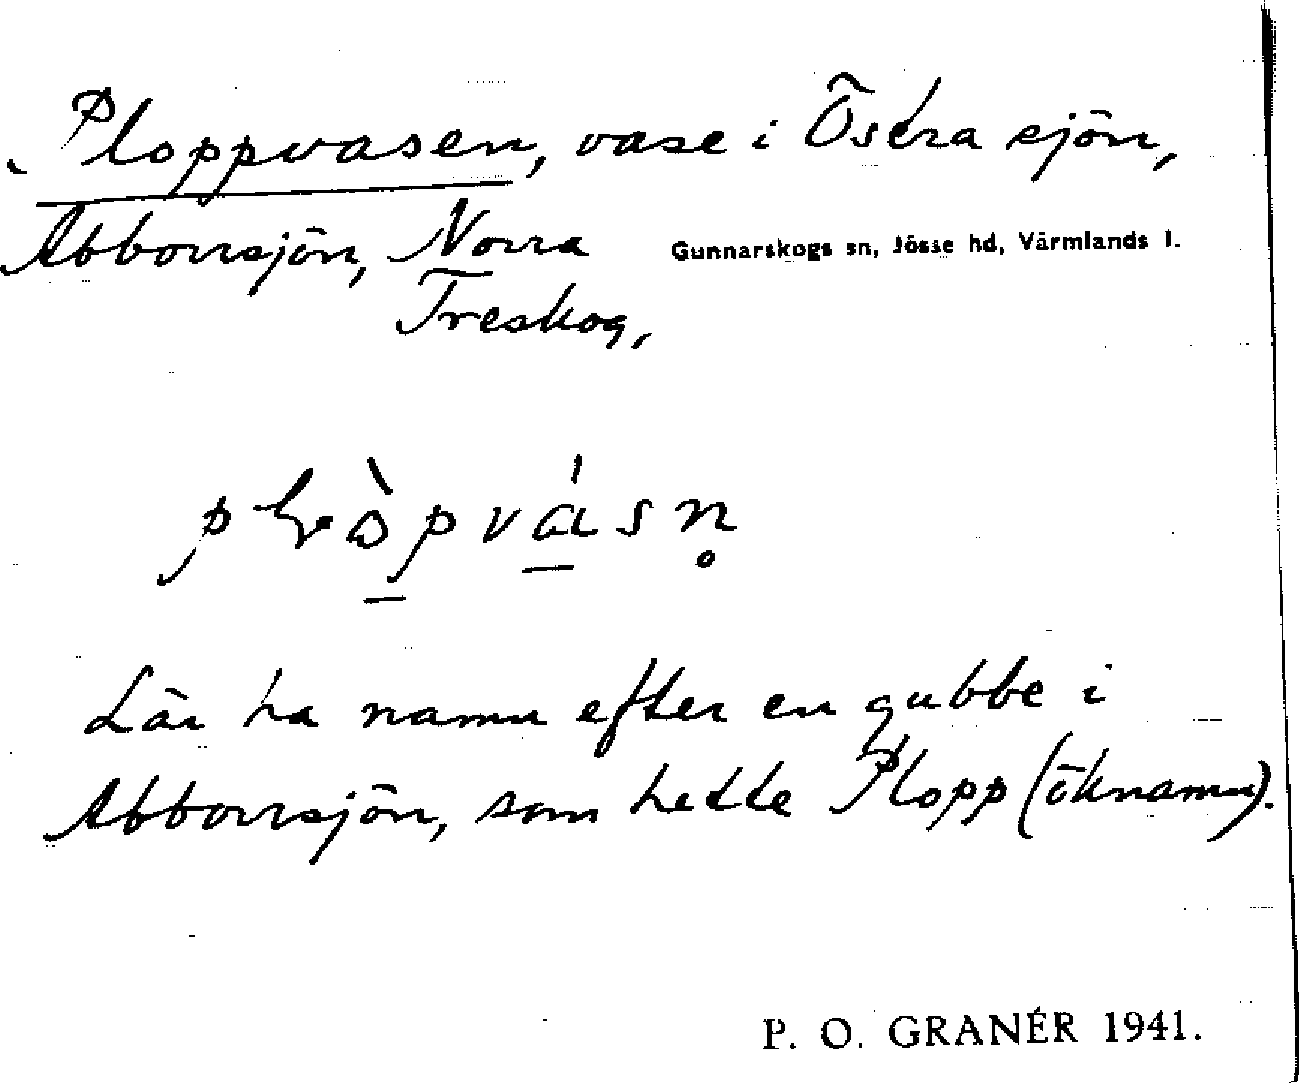 Ploppvasen, vase i Östra sjön,
Abborrsjön, Norra
Gunnarskogs sn, Jösse hd, Värmlands l.
Treskog,
Lär ha namn efter en gubbe i
Abborrsjön, som hette Plopp (öknamn).
P. O. GRANÉR 1941.